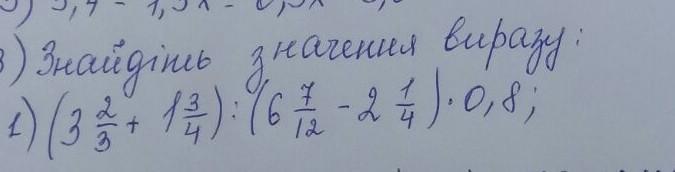 3) Знайдіть значення виразу:
1) (3 2/3 + 1 3/4) : (6 7/12 - 2 1/4) · 0,8;